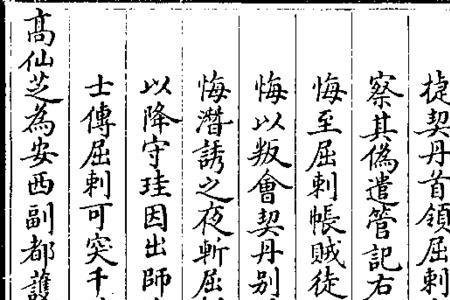 捷契丹首領屈刺
察其偽遣管記右
悔至屈刺帳賊徒
悔以叛會契丹别
悔潛誘之夜斬屈
以降守珪因出師
士傳屈刺可突千
髙仙芝為安西副都護